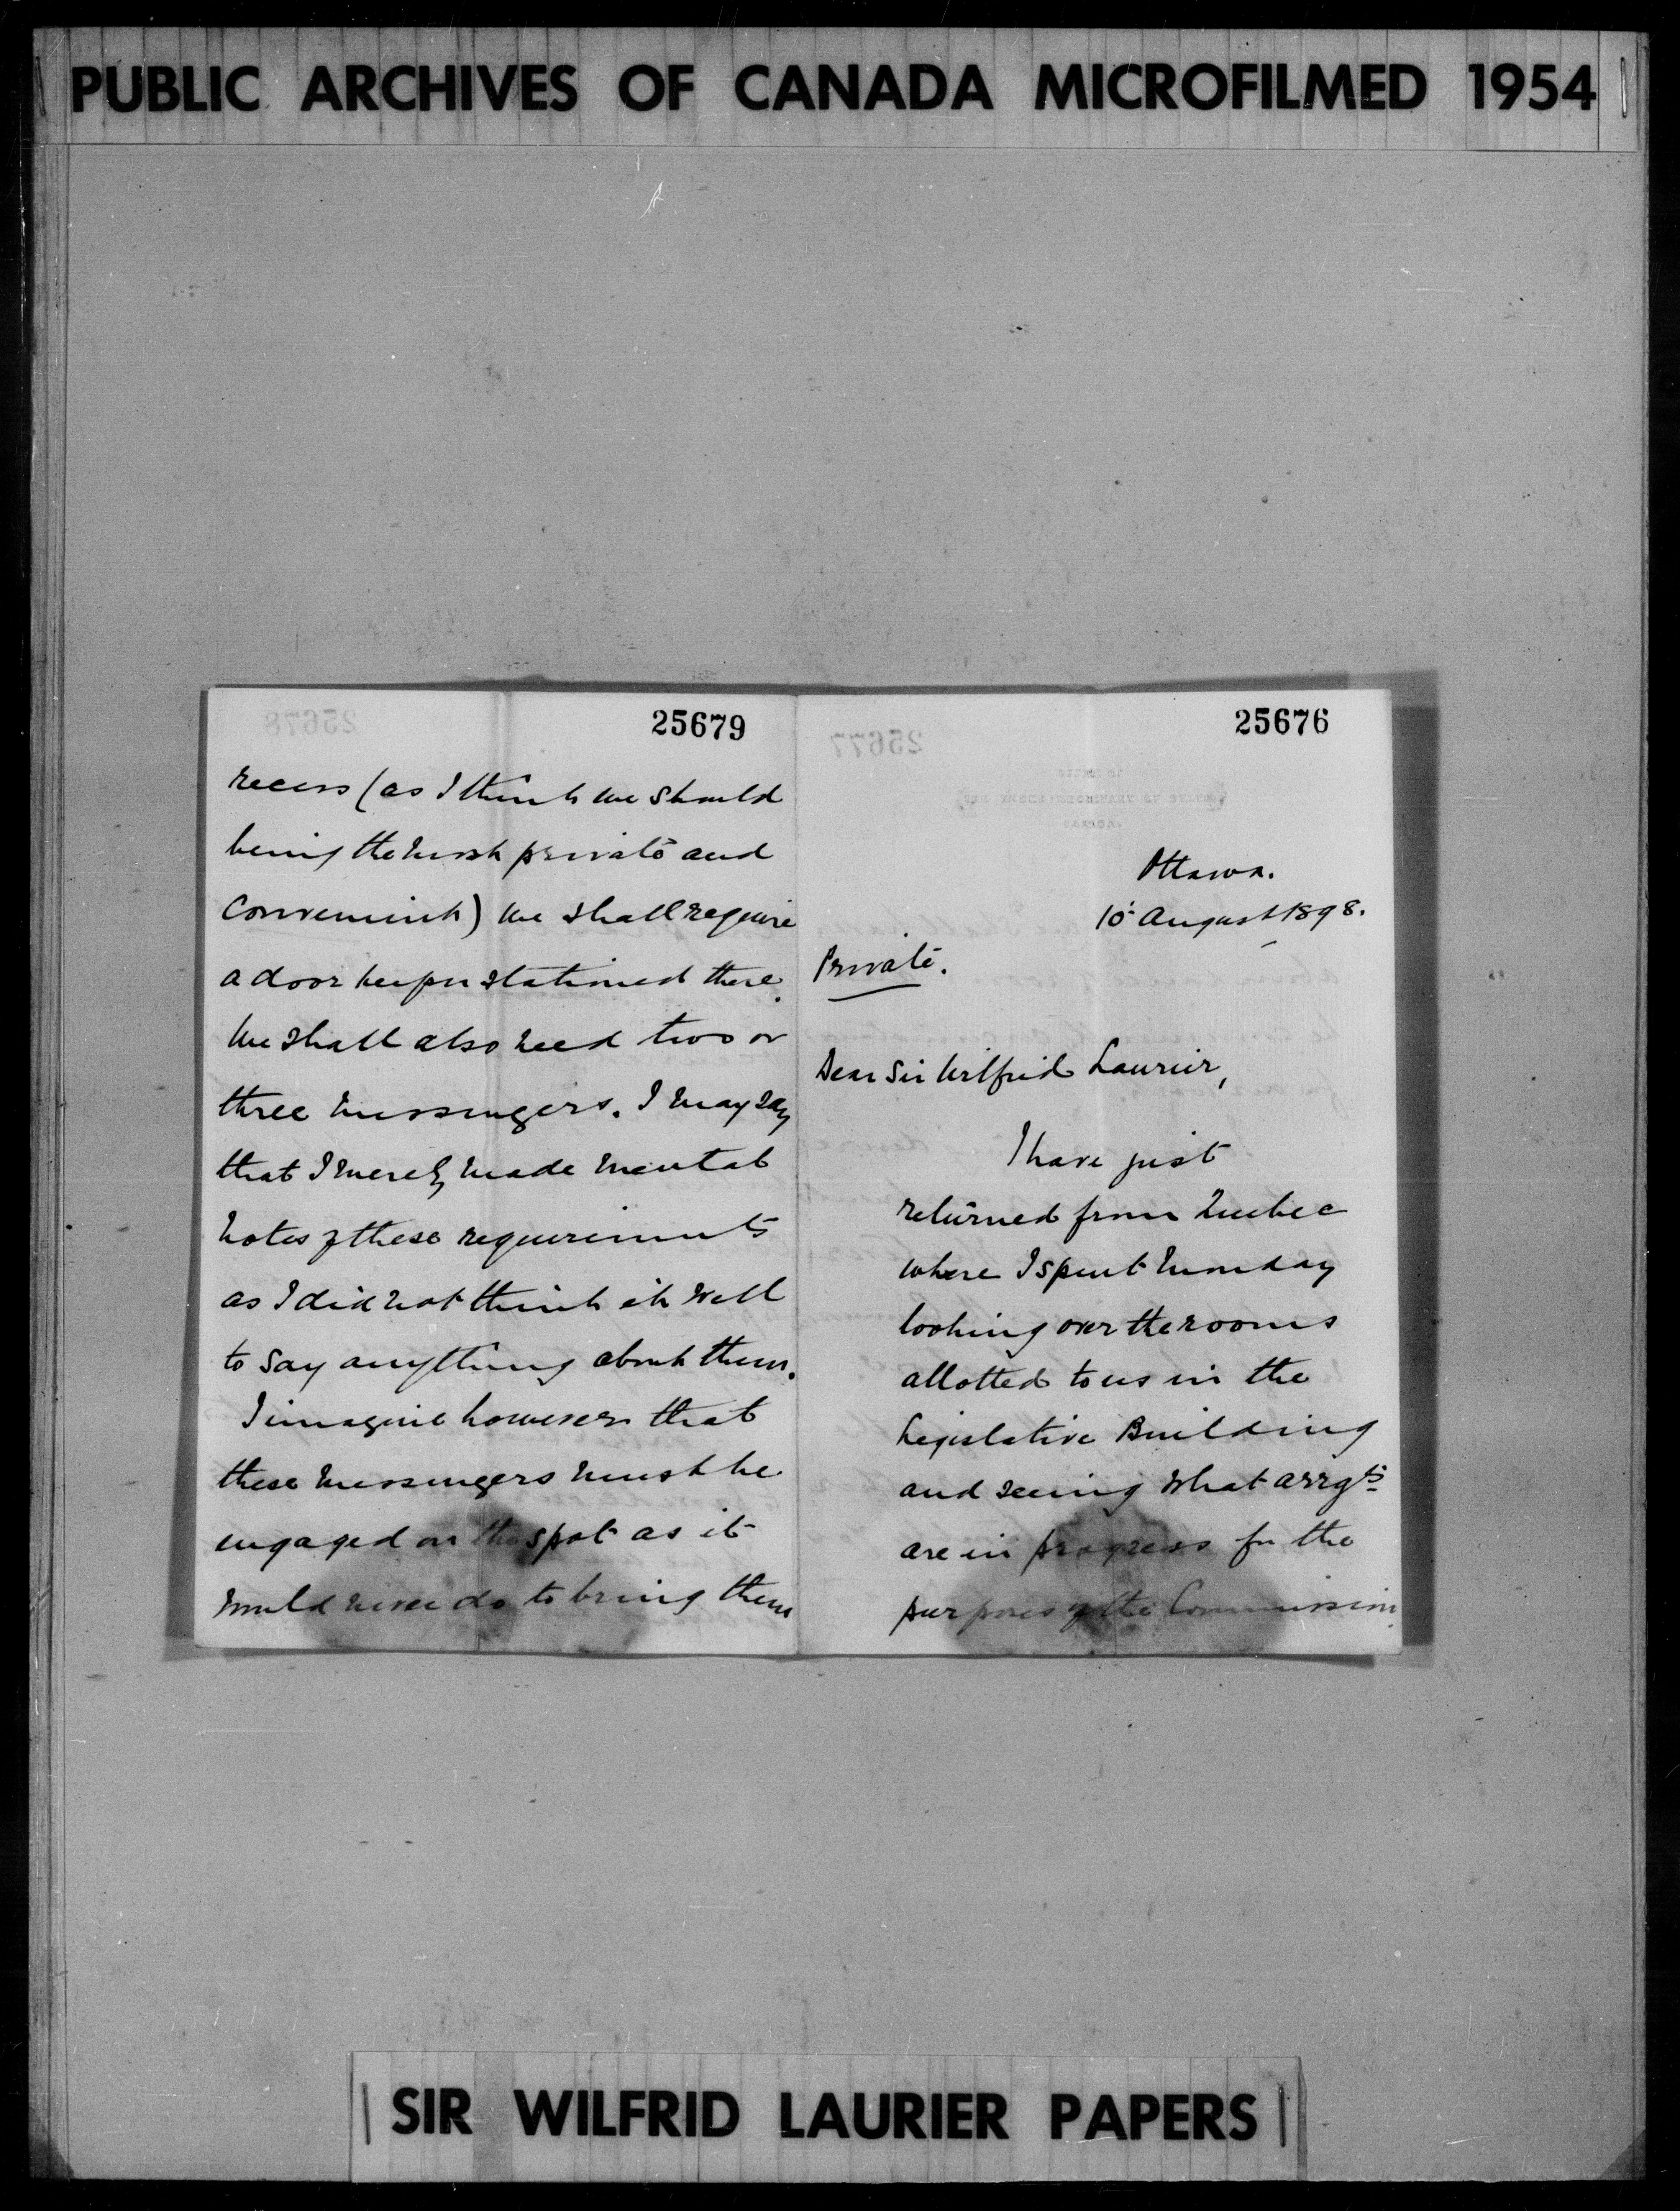 PUBLIC ARCHIVES OF CANADA MICROFILMED 1954
25679
recess (as I think we should
being the most private and
convenient) we shall require
a door keeper stationed there.
We shall also need two or
three messengers. I may say
that I merely made mental
notes of these requirements
as I did not think it well
to say anything about them.
I imagine however that
these messengers must be
engaged on the spot as it
would never do to bring them
25676
Ottawa.
10 August 1898.
Private.
Dear Sir Wilfrid Laurier,
I have just
returned from Quebec
where I spent Monday
looking over the rooms
allotted to us in the
Legislative Building
and seeing what arrgts
are in progress for the
purposes of the Commission.
SIR WILFRID LAURIER PAPERS